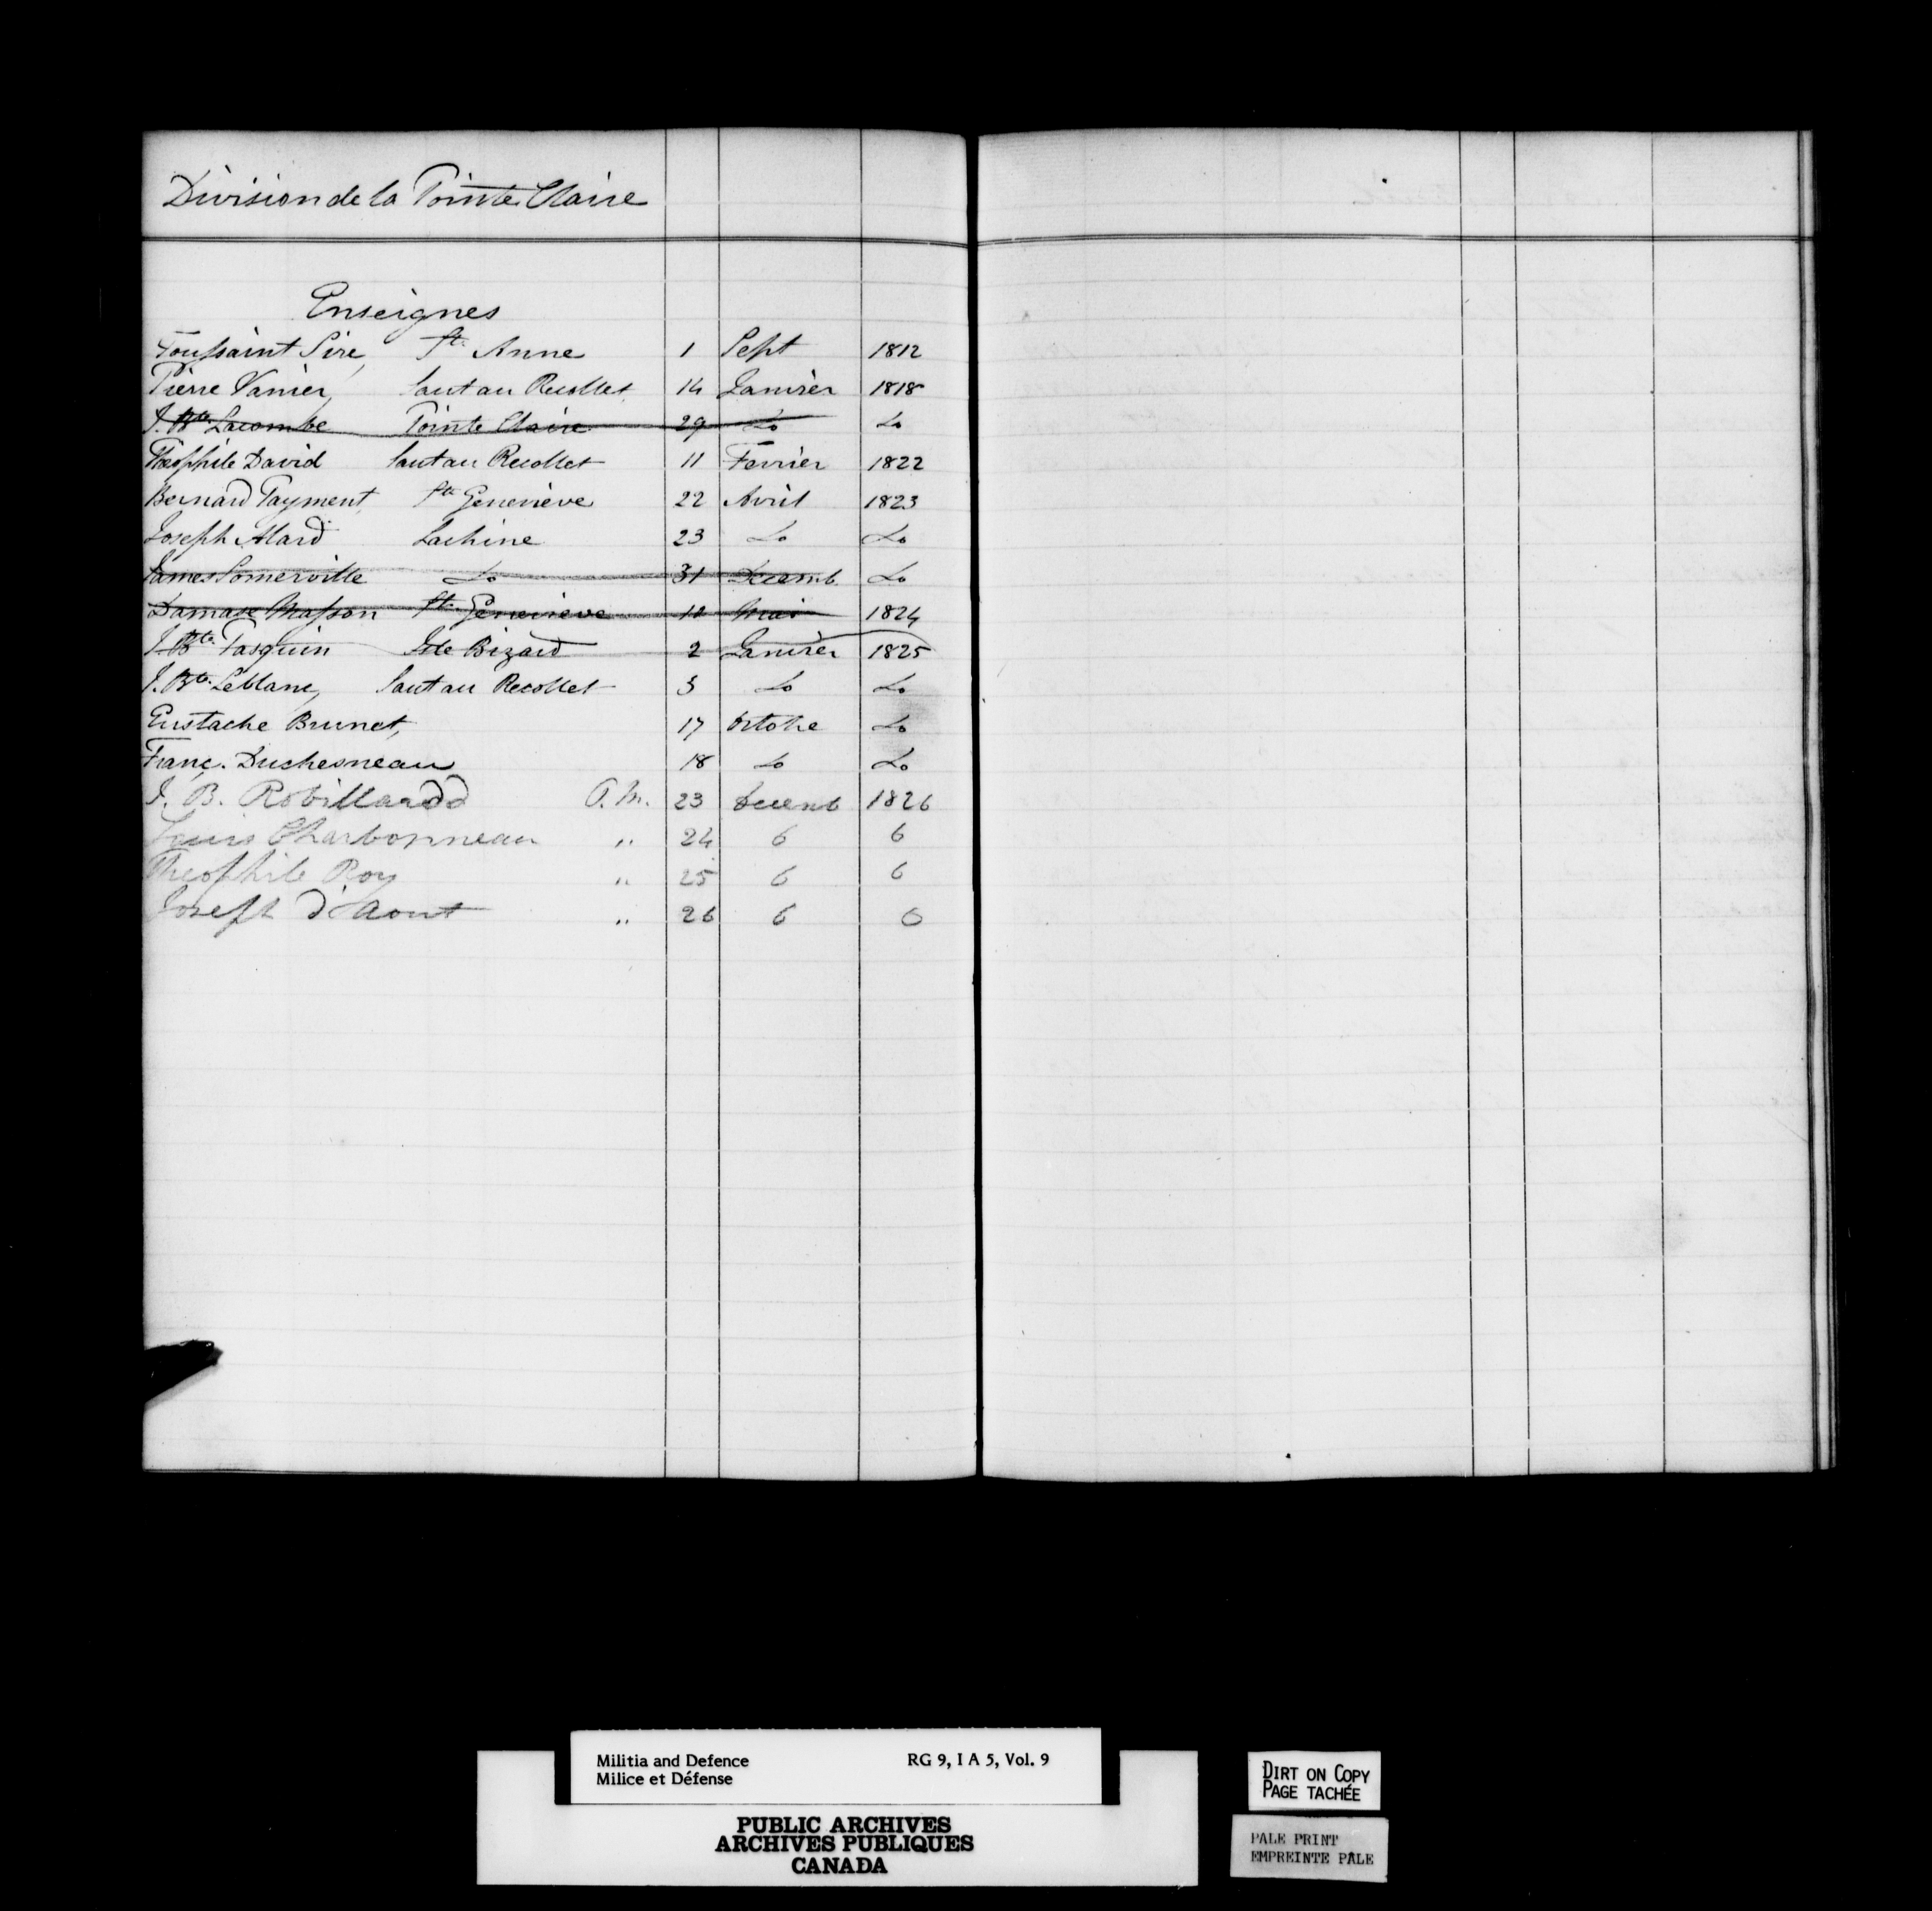 Division de la Pointe Claire
Enseignes
Toussaint Sire, St. Anne 1 Sept 1812
Pierre Vanier, Saut au Recollet 14 Janvier 1818
J. Bte. Lacombe Pointe Claire 29 Do Do
Théophile David Saut au Recollet 11 Fevrier 1822
Bernard Payment, Ste Geneviève 22 Avril 1823
Joseph Alard Lachine 23 Do Do
James Somerville Do 31 Decemb. Do
Damase Masson Ste Geneviève 10 Mai 1824
J. Bte. Pasquin Isle Bizard 2 Janvier 1825
J. Bte. Leblanc, Saut au Recollet 3 Do Do
Eustache Brunet, 17 Octobre Do
Franç. Duchesneau 18 Do Do
J. B. Robillard A. M. 23 Decemb 1826
Louis Charbonneau " 24 6 6
Theophile Roy " 25 6 6
Joseph d'Aout " 26 6 6
Militia and Defence RG 9, I A 5, Vol. 9
Milice et Défense
PUBLIC ARCHIVES
ARCHIVES PUBLIQUES
CANADA
DIRT ON COPY
PAGE TACHÉE
PALE PRINT
EMPREINTE PÂLE